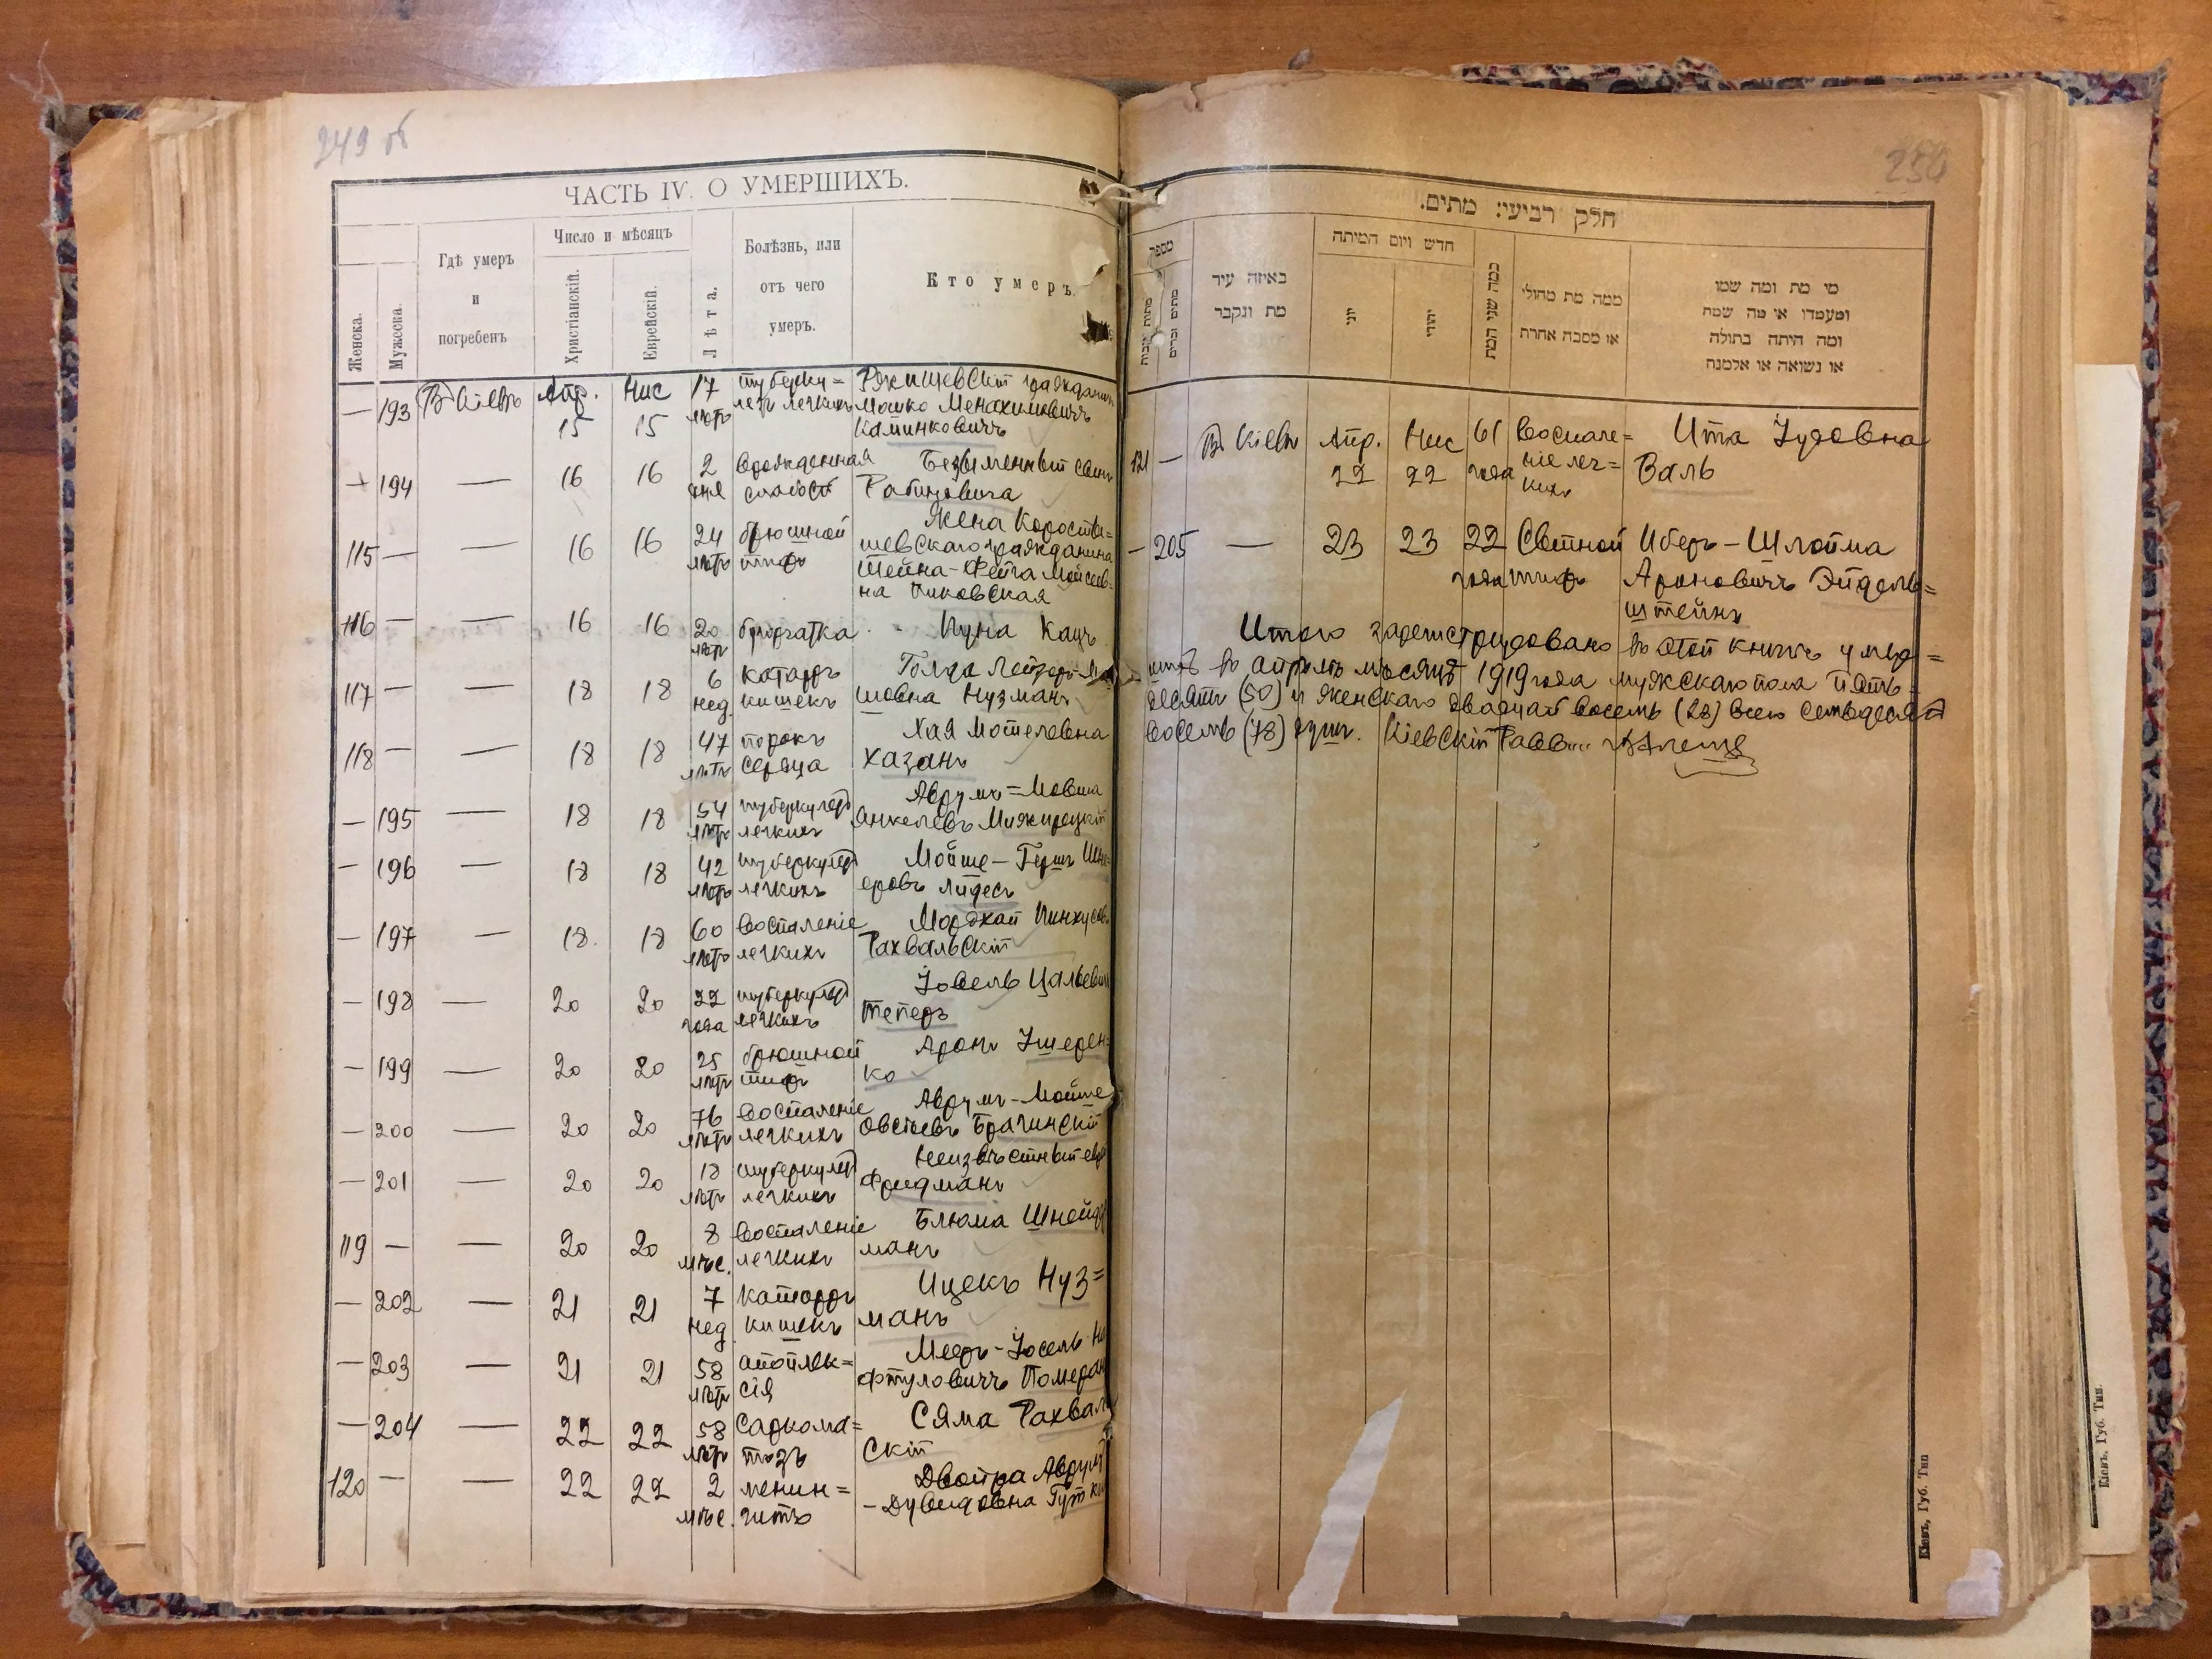 249 об
ЧАСТЬ IV. О УМЕРШИХЪ.
Женска.
Мужеска.
Гдѣ умеръ
и
погребенъ
Число и мѣсяцъ
Христіанскій.
Еврейскій.
Лѣта.
Болѣзнь, или
отъ чего
умеръ.
Кто умеръ
— 193 В Кіевѣ Апр. 15 Нис 15 17 лѣтъ туберку=
лезъ легкихъ
Ржищевскій гражданин
Мошко Менахимовичъ
Каминковичъ
194 — 16 16 2 дня врожденная
слабость
Безыменный сынъ
Рабиновича
115 — — 16 16 24 лѣтъ брюшной
тифъ
Жена Коросты=
шевскаго гражданина
Шейна-Фейга Мойсеев-
на Пиковская
116 — — 16 16 20 лѣтъ Кацъ
117 — — 18 18 6 нед. катаръ
кишекъ
Голда
шовна Нузманъ
118 — — 18 18 47 лѣтъ порокъ
сердца
Хая Мотелевна
Хазанъ
— 195 — 18 18 54 лѣтъ туберкулезъ
легкихъ
Аврумъ=Мовша
Янкелевъ Межирецкій
— 196 — 18 18 42 лѣтъ туберкулезъ
легкихъ
Мойше-Гершъ Шне
еровъ Лидесъ
— 197 — 18 18 60 лѣтъ воспаленіе
легкихъ
Мордхай Пинхусов
Рахвальскій
— 198 — 20 20 22 года туберкулезъ
легкихъ
Іовель
Теперъ
— 199 — 20 20 25 лѣтъ брюшной
тифъ
Аронъ Ушерен
ко
— 200 — 20 20 76 лѣтъ воспаленіе
легкихъ
Аврумъ-Мойше
Овсіевъ Брагинскій
— 201 — 20 20 18 лѣтъ туберкулезъ
легкихъ
Неизвѣстный евр
Фридманъ
119 — — 20 20 8 мѣс. воспаленіе
легкихъ
Блюма Шнейд
манъ
— 202 — 21 21 7 нед. катарръ
кишекъ
Ицекъ Нуз=
манъ
— 203 — 21 21 58 лѣтъ апоплек=
сія
Мееръ-Іосель На
фтуловичъ Померан
— 204 — 22 22 58 лѣтъ саркома=
тозъ
Сяма Рахваль
скій
120 — — 22 22 2 мѣс. менин=
гитъ
Двойра Аврум
-Дувидовна Гутки
חלק רביעי: מתים.
מספר
מתים זכרים
באיזה עיר
מת ונקבר
חדש ויום המיתה
יוני
יהודי
כמה שני המת
ממה מת מחולי
או מסבה אחרת
מי מת ומה שמו
ומעמדו או מה שמה
ומה היתה בתולה
או נשואה או אלמנה
121 — В. Кіевѣ Апр. 22 Нис 22 61 года воспале=
ніе лег=
кихъ
Ита Іудовна
Валь
— 205 — 23 23 22 года Сыпной
тифъ
Иберъ-Шлойма
Ароновичъ Эйдель=
штейнъ
Итого зарегистрировано въ этой книгѣ умер=
шихъ въ апрѣлѣ мѣсяцѣ 1919 года мужскаго пола пять=
десятъ (50) и женскаго двадцать восемь (28) всего семьдесятъ
восемь (78) душъ. Кіевскій Раввинъ
Кіевъ, Губ. Тип
Кіевъ. Губ. Тип.